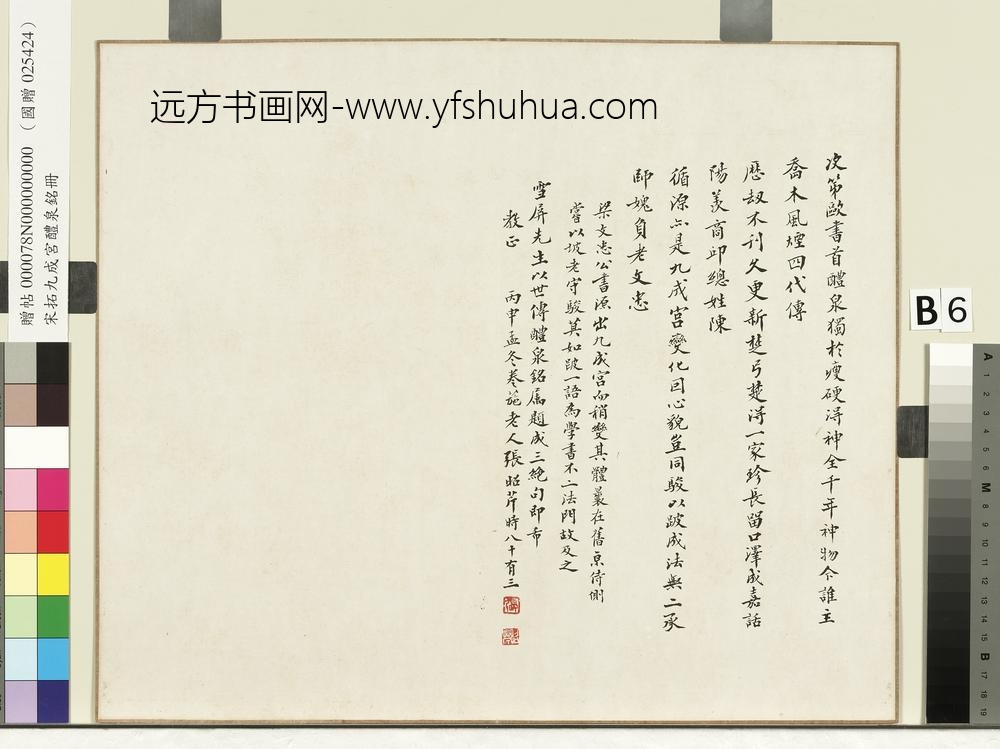 远方书画网-www.yfshuhua.com
次第歐書首醴泉獨於瘦硬淂神全千年神物今誰主
喬木風煙四代傳
歷劫不刊久更新楚弓楚淂一家珍長留口澤成嘉話
陽羨商邱總姓陳
循源亦是九成宮變化因心貌豈同駿以跛成法無二承
師媿負老文忠
梁文忠公書源出九成宮而稍變其體曩在舊京侍側
嘗以坡老守駿莫如跛一語為學書不二法門故及之
雪屏先生以世傳醴泉銘屬題成三絶句即希
教正 丙申孟冬卷葹老人張昭芹時八十有三
贈帖 000078N000000000 （國贈 025424）
宋拓九成宮醴泉銘冊
B 6
A 1 2 3 4 5 6 M 8 9 10 11 12 13 14 15 B 17 18 19